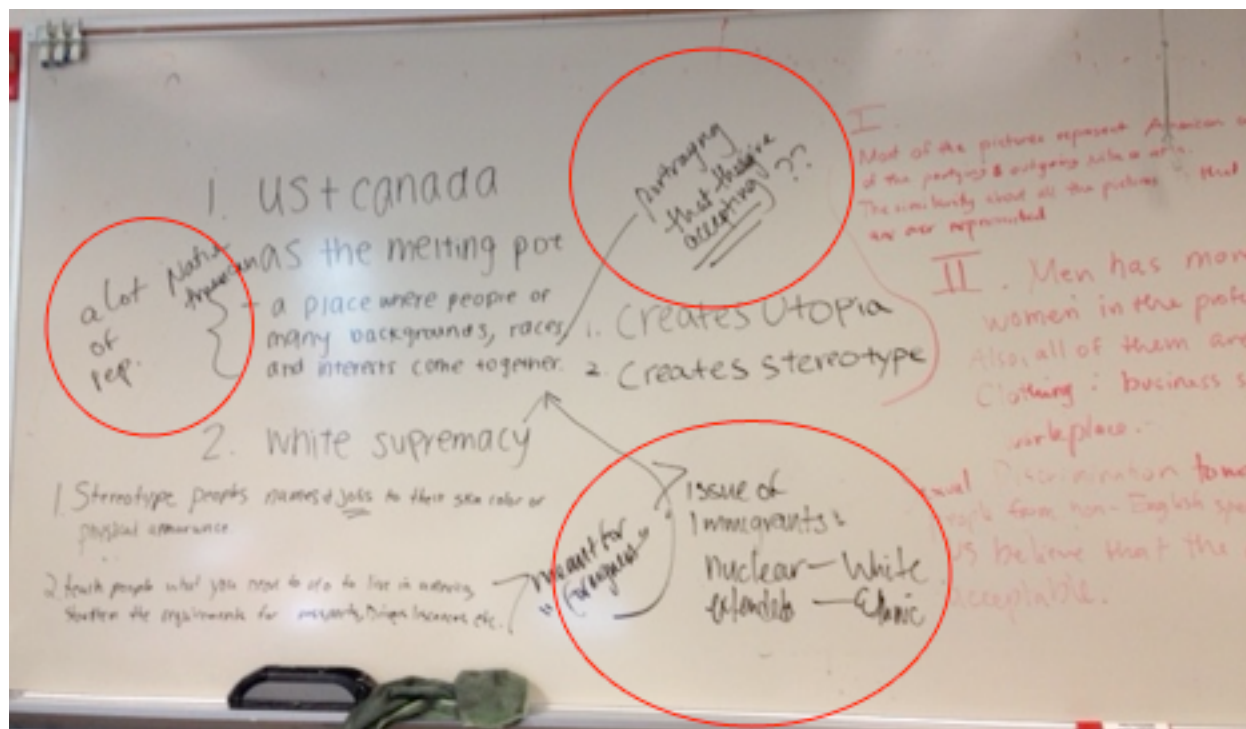 1. US + Canada
as the melting pot
- a place where people of
many backgrounds, races,
and interests come together.
a lot
of
rep.
Native
American
portraying
that they're
accepting ??
1. Creates Utopia
2. Creates stereotype
2. White supremacy
1. Stereotype peoples names + jobs to their skin color or
physical appearance.
2. teach people what you need to do to live in
the requirements for passports, etc.
meant for
issue of
Immigrants:
nuclear — White
extended — Ethnic
I.
Most of the pictures represent American
of the partying & outgoing
The similarity about all the pictures that
are represented
II. Men has mor
women in the profe
Also, all of them are
Clothing : business s
workplace.
Discrimination towa
people from non-English spe
US believe that the
acceptable.